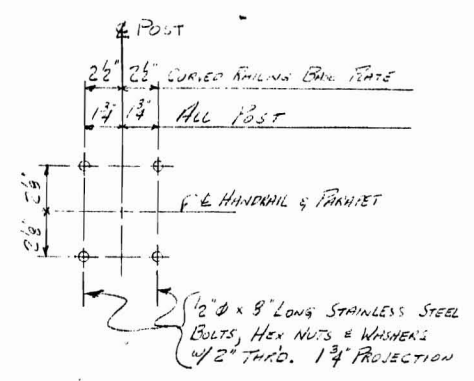 ℄ POST
2½" 2½" CURVED RAILING BASE PLATE
1¾" 1¾" ALL POST
2⅛" 2⅛"
℄ HANDRAIL & PARAPET
½"Ø x 8" LONG STAINLESS STEEL
BOLTS, HEX NUTS & WASHERS
W/ 2" THR'D. 1¾" PROJECTION